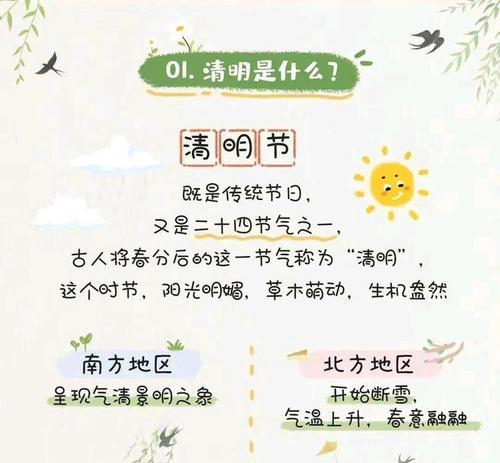 01.清明是什么?
清明节
既是传统节日，
又是二十四节气之一，
古人将春分后的这一节气称为“清明”，
这个时节，阳光明媚，草木萌动，生机盎然
南方地区
呈现气清景明之象
北方地区
开始断雪，
气温上升，春意融融